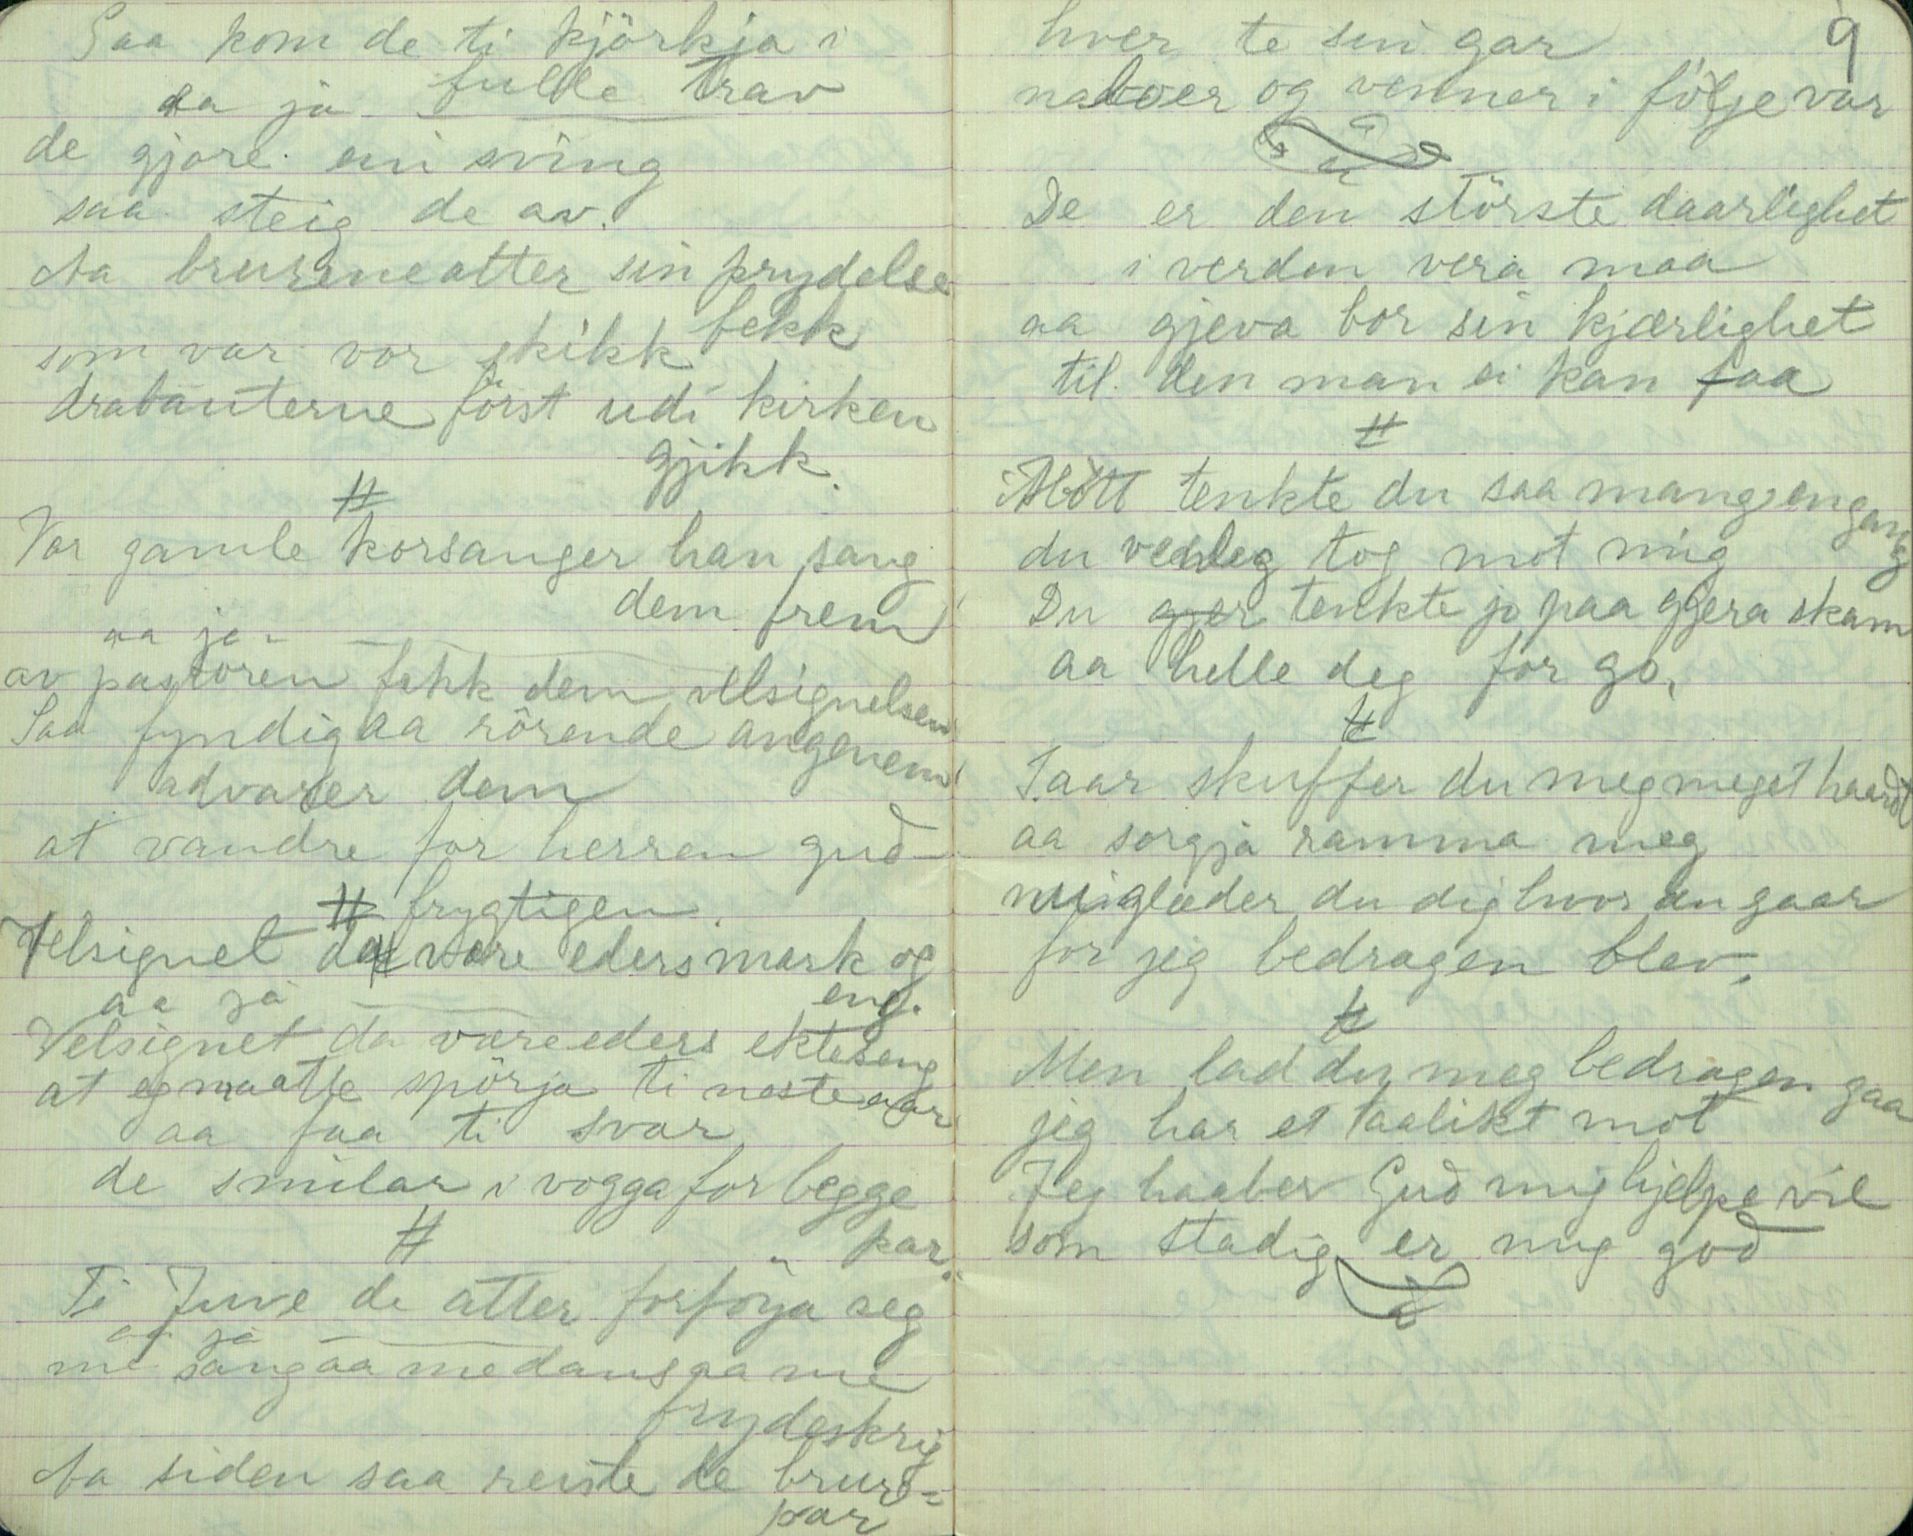 Saa kom de ti kjörkja i
fulle trav
aa ja
de gjore ein sving
saa steig de av.
Aa brurene atter sin prydelse
fekk
som var vor skikk
drabanterne först udi kirken
gjikk.
#
Vor gamle korsanger han sang
dem frem
aa ja
av pastoren fekk dem velsignelsen
Saa fyndig aa rörende angenem
advarer dem
at vandre for herren gud
frygtigen.
#
Velsignet da vare eders mark og
eng.
aa ja
Velsignet da være eders ekteseng
at eg maatte spörja ti neste aar
aa faa ti svar
de smilar i vogga for begge
kar.
#
Ti Juve de atter forföya seg
aa ja
me sang aa me dans aa me
frydeskrig
Aa siden saa reiste de brur=
par
9
hver te sin gar
naboer og venner i följe var
De er den störste daarlighet
i verden vera maa
aa gjeva bor sin kjærlighet
til den man ei kan faa
#
tenkte du saa mang en gang
du venleg tog mot mig
Du gjer tenkte jo paa gjera skam
aa helle deg for go,
#
Taar skuffer du meg meget haardt
aa sorgja ramma meg
nu glæder du dig hvor du gaar
for jeg bedragen blev.
#
Men lad du meg bedragen gaa
jeg har et taalikt mot
Jeg haaber Gud mig hjelpe vil
som stadig er mig god